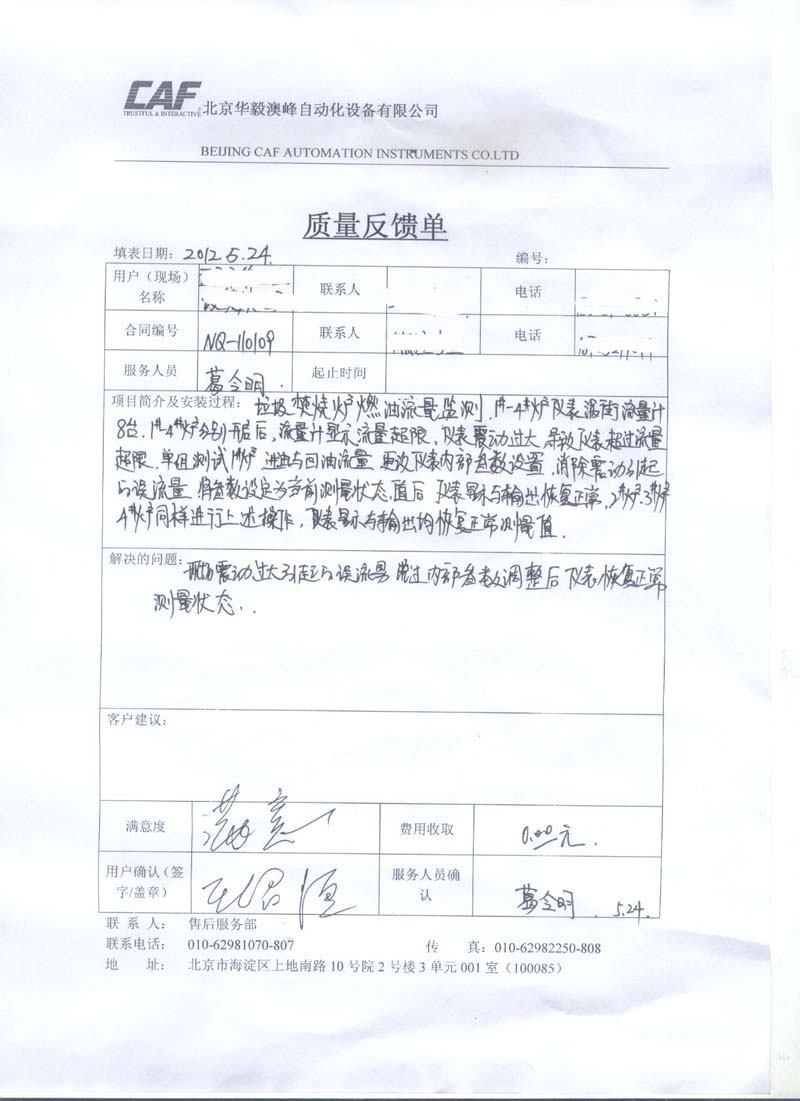 CAF
TRUSTFUL & INTERACTIVE
北京华毅澳峰自动化设备有限公司
BEIJING CAF AUTOMATION INSTRUMENTS CO.LTD
质量反馈单
填表日期：2012.5.24. 编号：
用户（现场）名称 联系人 电话
合同编号 NQ-110109 联系人 电话
服务人员 葛令明. 起止时间
项目简介及安装过程：垃圾焚烧炉燃油流量监测，1#-4#炉仪表涡街流量计
8台. 1#-4#炉分别开启后，流量计显示流量超限，仪表震动过大，导致仪表超过流量
超限. 单组测试1#炉进油与回油流量，更改仪表内部参数设置，消除震动引起
的误流量，将参数设定为当前测量状态值后，仪表显示与输出恢复正常，2#炉.3#炉
4#炉同样进行上述操作，仪表显示与输出均恢复正常测量值.
解决的问题：现场震动过大引起的误流量，通过内部参数调整后仪表恢复正常
测量状态..
客户建议：
满意度 满意 费用收取 0.00元.
用户确认（签字/盖章） 服务人员确认 葛令明. 5.24.
联 系 人： 售后服务部
联系电话： 010-62981070-807 传 真：010-62982250-808
地 址： 北京市海淀区上地南路10号院2号楼3单元001室（100085）